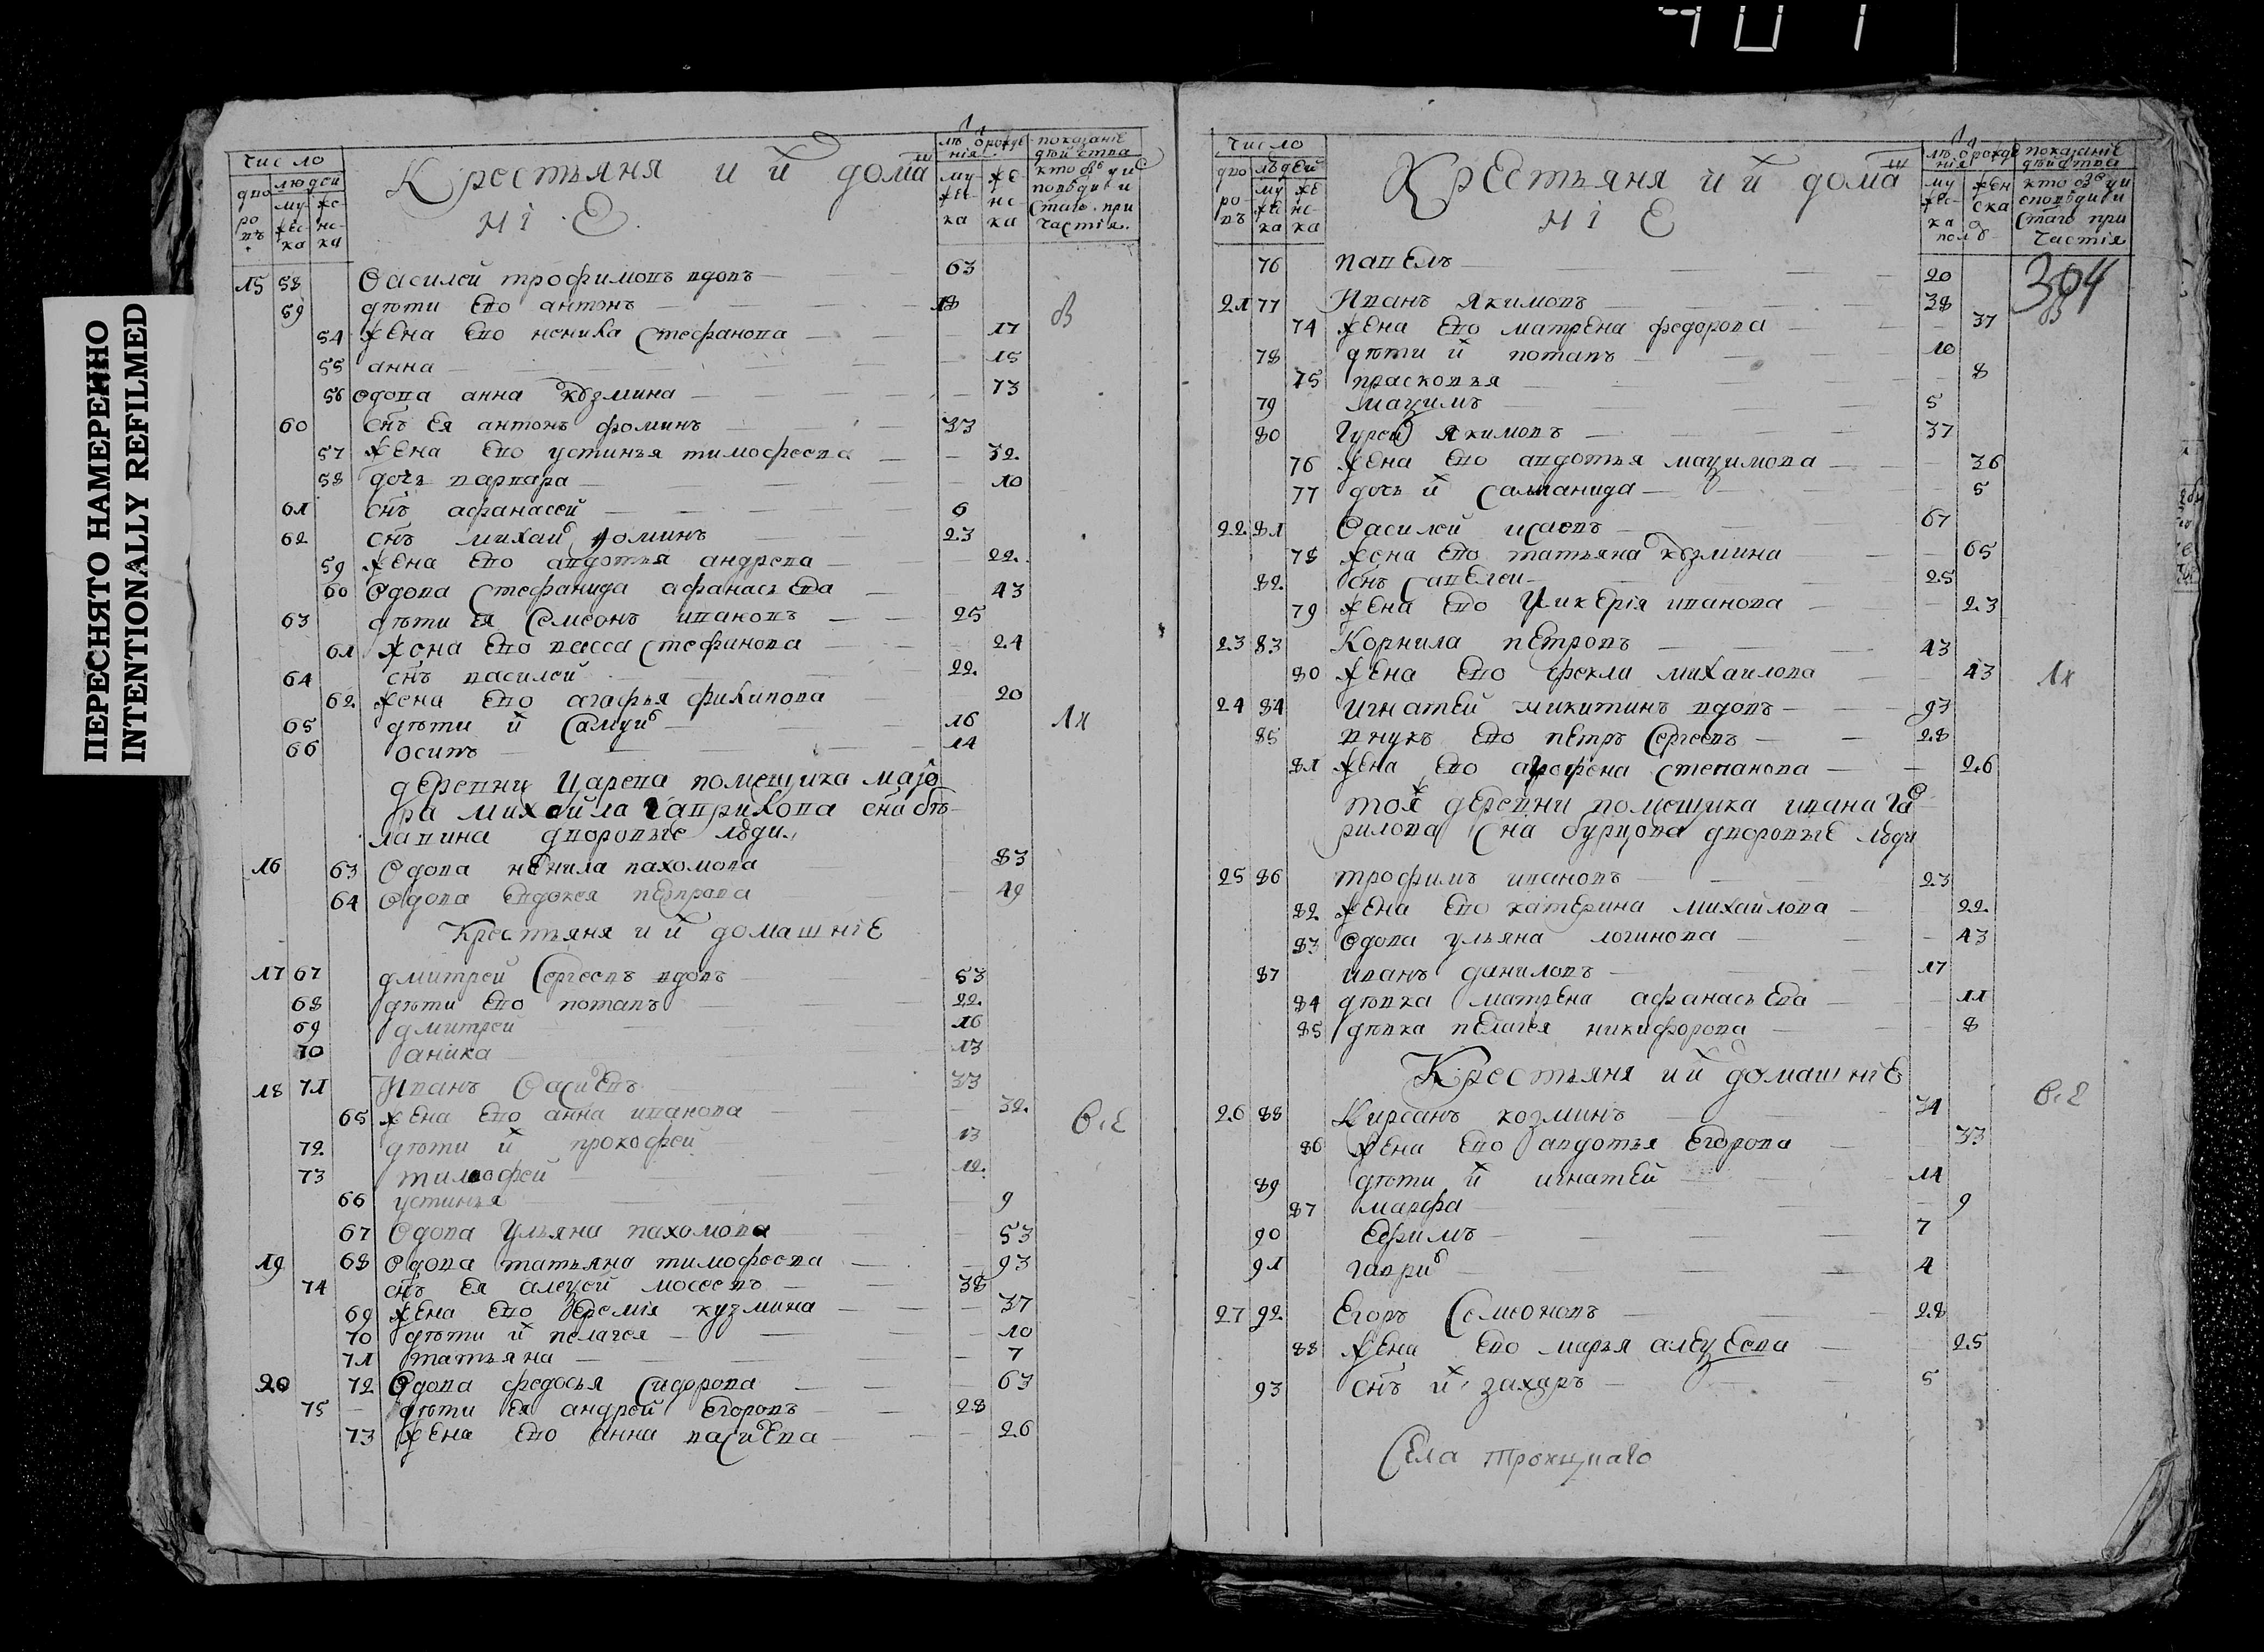 ПЕРЕСНЯТО НАМЕРЕННО
INTENTIONALLY REFILMED
число
дворовъ
людей
мужеска
женска
Крестьяня и ихъ домашніе
лѣ о рожденія
мужеска
женска
показаніе дѣйства кто былъ у исповѣди и стаго причастія.
15 58 Василей трофимовъ вдовъ 63
59 дѣти ево антонъ 18
54 жена ево ненила стефанова 17
55 анна 15
56 вдова анна кузмина 73
60 снъ ея антонъ фоминъ 33
57 жена ево устинья тимофеева 32
58 дочь варвара 10
61 снъ афанасей 6
62 снъ михайл фоминъ 23
59 жена ево авдотья андрева 22
60 вдова стефанида афанасьева 43
63 дѣти ея семеонъ ивановъ 25
61 жена ево васса стефанова 24
64 снъ василей 22
62 жена ево агафья филипова 20
65 дѣти ихъ самуил 16
66 осипъ 14
деревни Царева помещика маіо
ра михайла гаврилова сна бѣ
лавина дворовые люди
16 63 Вдова ненила пахомова 83
64 вдова евдокея петрова 49
Крестьяня и ихъ домашніе
17 67 дмитрей сергеевъ вдовъ 53
68 дѣти ево потапъ 22
69 дмитрей 16
70 аника 13
18 71 Иванъ Васильевъ 33
65 жена ево анна иванова 32
72 дѣти ихъ прокофей 13
73 тимофей 12
66 устинья 9
67 Вдова ульяна пахомова 53
19 68 вдова татьяна тимофеева 93
74 снъ ея алеѯей мосеевъ 38
69 жена ево кузмина 37
70 дѣти ихъ пелагея 10
71 татьяна 7
20 72 Вдова федосья сидорова 63
75 дѣти ея андрей егоровъ 28
73 жена ево анна васильева 26
число
дворовъ
людей
мужеска
женска
Крестьяня и ихъ домашніе
лѣ о рожденія
мужеска
женска
полъ
показаніе дѣйства кто былъ у исповѣди и стаго причастія
304
76 павелъ 20
21 77 Иванъ якимовъ 38
74 жена ево матрена федорова 37
78 дѣти ихъ потапъ 10
75 прасковья 8
79 маѯимъ 5
80 Гурей якимовъ 37
76 жена ево авдотья маѯимова 36
77 дочь ихъ саламанида 5
22 81 Василей исаевъ 67
78 жена ево татьяна кузмина 65
82 снъ савелей 25
79 жена ево гликерія иванова 23
23 83 Корнила петровъ 43
80 жена ево фекла михаилова 43
24 84 игнатей микитинъ вдовъ 93
85 внукъ ево петръ сергеевъ 28
81 жена ево агрофена степанова 26
тоя деревни помещика ивана гав
рилова сна бурцова дворовые люди
25 86 трофимъ ивановъ 23
82 жена ево катерина михайлова 22
83 вдова ульяна логинова 43
87 иванъ даниловъ 17
84 дѣвка матрена афанасьева 11
85 дѣвка пелагея никифорова 8
Крестьяня и ихъ домашніе
26 88 Кирсанъ козминъ 34
86 жена ево авдотья егорова 33
89 дѣти ихъ игнатей 14
87 марфа 9
90 ефимъ 7
91 гаврил 4
27 92 Егоръ семеоновъ 28
88 жена ево марья алеѯеева 25
93 снъ ихъ захаръ 5
Села троицкаго